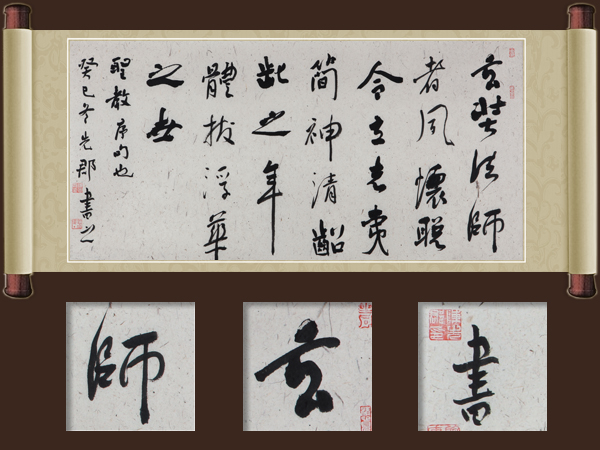 玄奘法師
者夙懷聰
令立志夷
簡神清齠
齔之年
體拔浮華
之世
聖教序句也
癸巳冬先郡書
師
玄
書